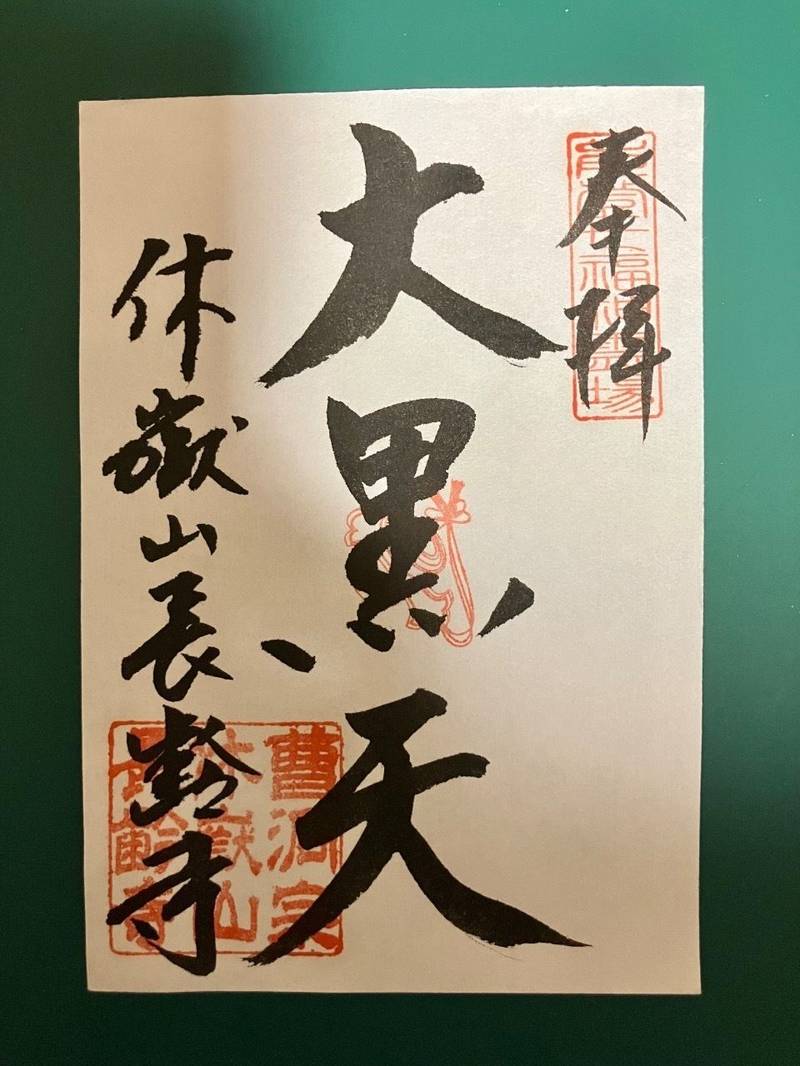 奉拝
能登七福神霊場
大黒天
休嶽山長齢寺
曹洞宗
休嶽山
長齢寺